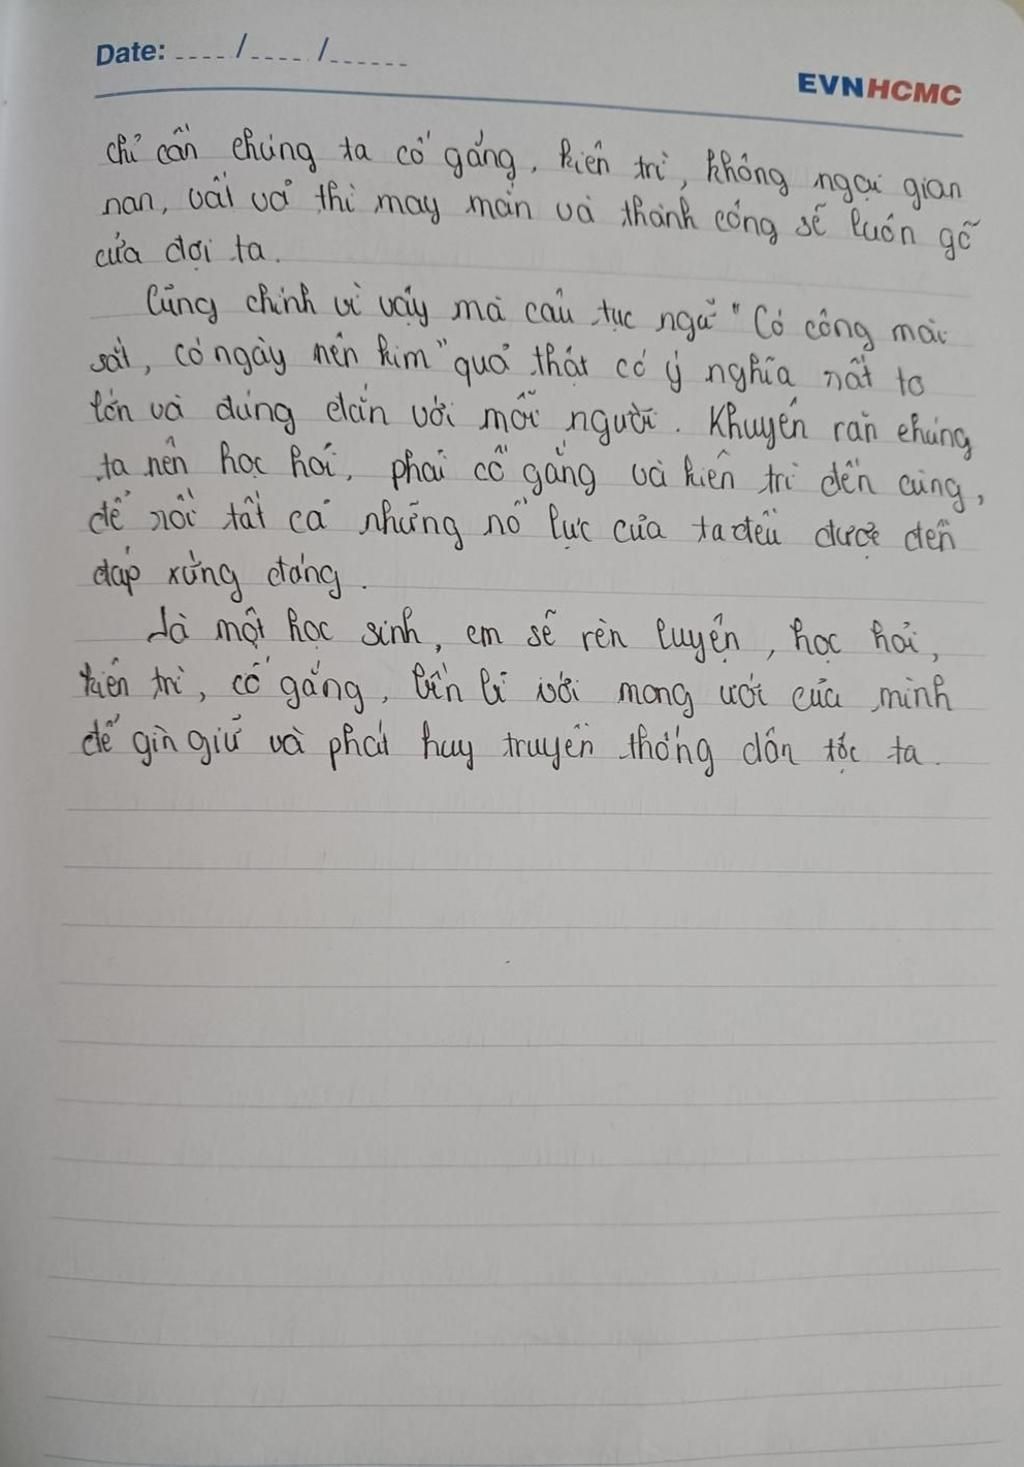 Date: ..../..../......
EVNHCMC
chỉ cần chúng ta cố gắng, kiên trì, không ngại gian
nan, vất vả thì may mắn và thành công sẽ luôn gõ
cửa đợi ta.
Cũng chính vì vậy mà câu tục ngữ "Có công mài
sắt, có ngày nên kim" quả thật có ý nghĩa rất to
lớn và đúng đắn với mỗi người. Khuyên răn chúng
ta nên học hỏi, phải cố gắng và kiên trì đến cùng,
để rồi tất cả những nỗ lực của ta đều được đền
đáp xứng đáng.
Là một học sinh, em sẽ rèn luyện, học hỏi,
kiên trì, cố gắng, bền bỉ với mong ước của mình
để gìn giữ và phát huy truyền thống dân tộc ta.